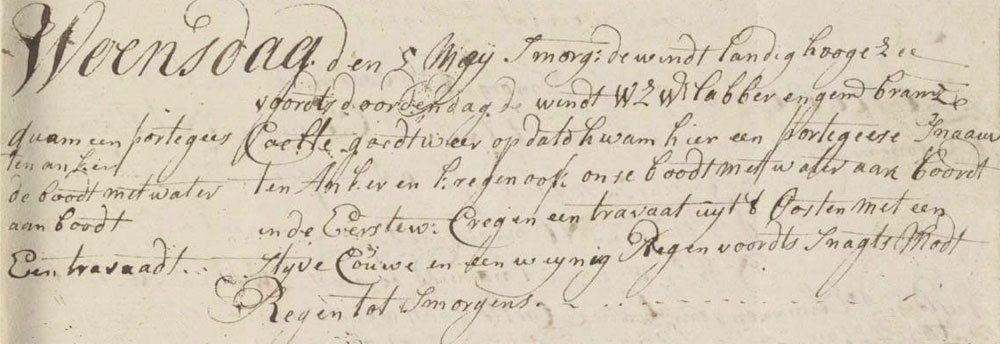 Woensdag. den 5 Meij Smorg: de windt landig hooge Zee
voordts door den dag de windt WZW Slabber en gemd bramZ
quam een portegees Coelte goedt weer op dato kwam hier een portegeese Snaauw
ten anker
ten Anker en kregen ook onse boodt met water aan boordt
de boodt met water
aan boodt in de Eerste w: Cregen een travaat uyt t Oosten met een
Een travaadt... Styve Couwe en een weynig Regen voordts Snagts Modt
Regen tot Smorgens.